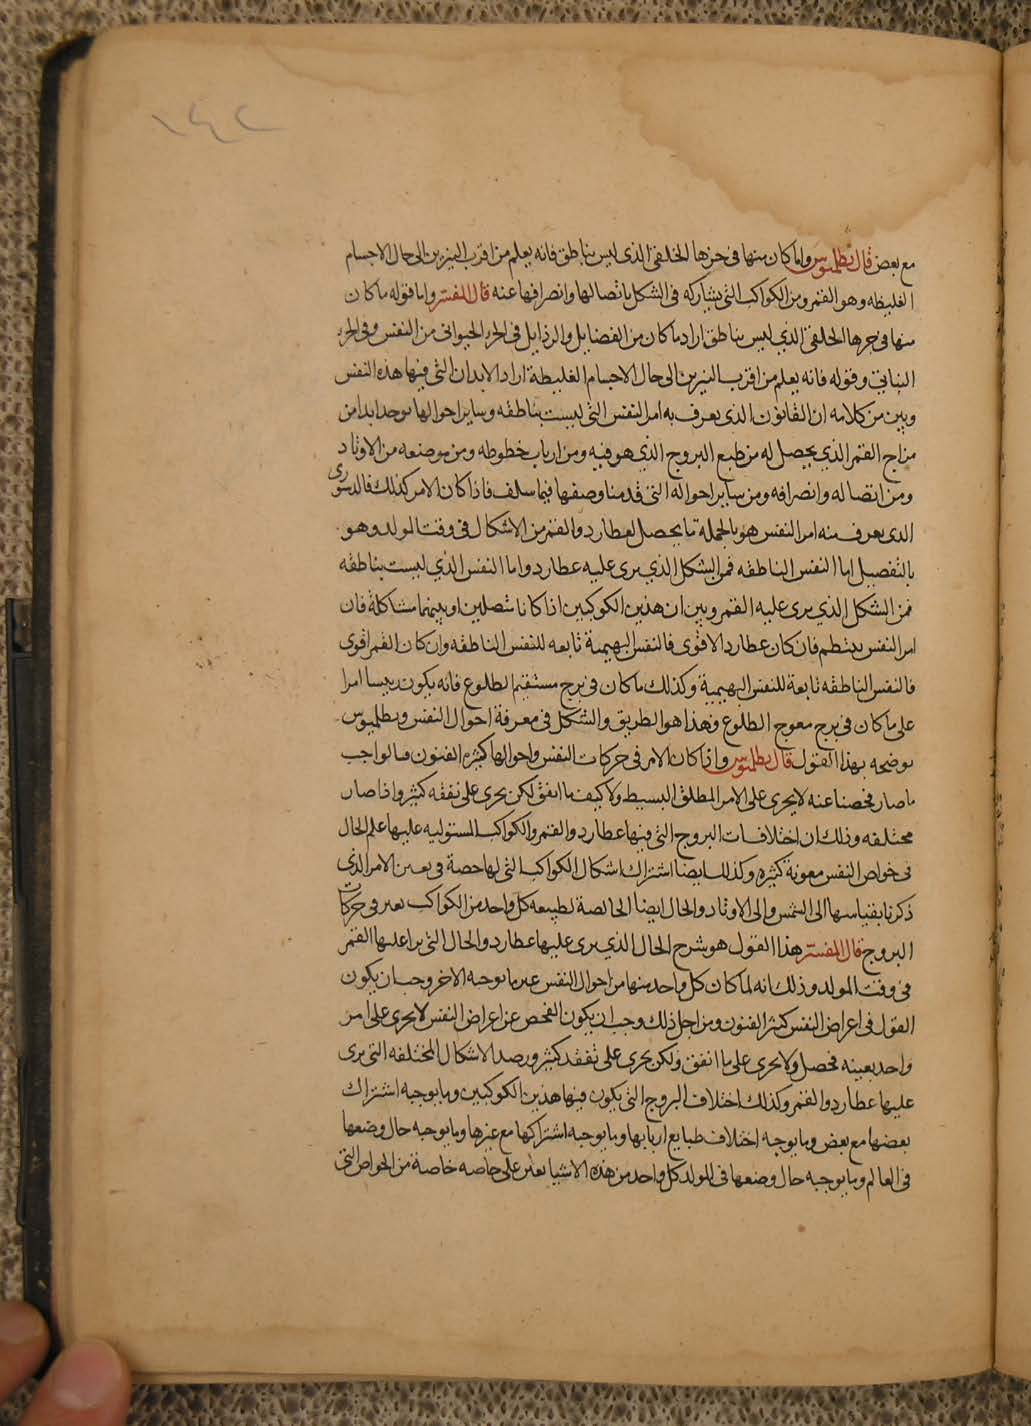 ١٤٢
مع بعض قال بطلميوس واما كان منها فى جزها الخلفى الذى ليس بناطق فانه يعلم من اقرب النيرين الى حال الاجسام
الغليظه وهو القمر ومن الكواكب التى يشاركه فى الشكل باتصالها وانصرافها عنه قال المفسر واما قوله ما كان
منها فى جزها الخلفى الذي ليس بناطق اراد ما كان من الفضايل والرذايل فى الجزء الحيوانى من النفس وفى الجزء
النباتي وقوله فانه يعلم من اقرب النيرين الى حال الاجسام الغليظة اراد الابدان التى فيها هذه النفس
وبين من كلامه ان القانون الذى يعرف به امر النفس التى ليست بناطقه وساير احوالها يوجد ابدا من
مزاج القمر الذي يحصل له من طبع البروج الذي هو فيه ومن ارباب حظوظه ومن موضعه من الاوتاد
ومن اتصاله وانصرافه ومن ساير احواله التى قدمنا وصفها فيما سلف فاذا كان الامر كذلك فالدستورى
الذى يعرف منه امر النفس هو بالجملة ما يحصل لعطارد والقمر من الاشكال فى وقت المولد وهو
بالتفصيل اما النفس الناطقه فمن الشكل الذي يرى عليه عطارد واما النفس الذي ليست بناطقه
فمن الشكل الذي يرى عليه القمر وبين ان هذين الكوكبين اذا كانا متصلين او بينهما مشاكلة فان
امر النفس ينتظم فان كان عطارد الاقوى فالنفس البهيمية تابعه للنفس الناطقه وان كان القمر اقوى
فالنفس الناطقه تابعة للنفس البهيمية وكذلك ما كان فى برج مستقيم الطلوع فانه يكون رييسا امرا
على ما كان فى برج معوج الطلوع وهذا هو الطريق والشكل فى معرفة احوال النفس وبطلميوس
يوضحه بهذا القول قال بطلميوس واذا كان الامر فى حركات النفس واحوالها كثيره الفنون فبالواجب
ما صار فحصنا عنه لا يجرى على الامر المطلق البسيط ولا كيف ما اتفق لكن يجرى على تفقه كثير واذا صار
مختلفه وذلك ان اختلافات البروج التى فيها عطارد والقمر والكواكب المستوليه عليها علم الحال
فى خواص النفس معونة كثيره وكذلك ايضا اشتراك اشكال الكواكب التى لها حصة فى بعين الامر الذى
ذكرنا بقياسها الى الشمس والى الاوتاد والحال ايضا الخالصة لطبيعه كل واحد من الكواكب تعين فى حركات
البروج قال المفسر هذا القول هو شرح الحال الذي يرى عليها عطارد والحال التى يرا عليها القمر
فى وقت المولد وذلك انه لما كان كل واحد منها من احوال النفس غير ما يوجبه الاخر وجب ان يكون
القول فى اعراض النفس كثير الفنون ومن اجل ذلك وجب ان يكون الفحص عن اعراض النفس لا يجرى على امر
واحد بعينه فحصل ولا يجرى على ما اتفق ولكن يجرى على تفقد كثير ورصد الاشكال المختلفه التى يرى
عليها عطارد والقمر وكذلك اختلاف البروج التى يكون فيها هذين الكوكبين وما يوجبه اشتراك
بعضها مع بعض وما يوجبه اختلاف طبايع اربابها وما يوجبه اشتراكها مع غيرها وما يوجبه حال وضعها
فى العالم وما يوجبه حال وضعها فى المولد كل واحد من هذه الاشيا يعين على خاصه خاصة من الخواص التى